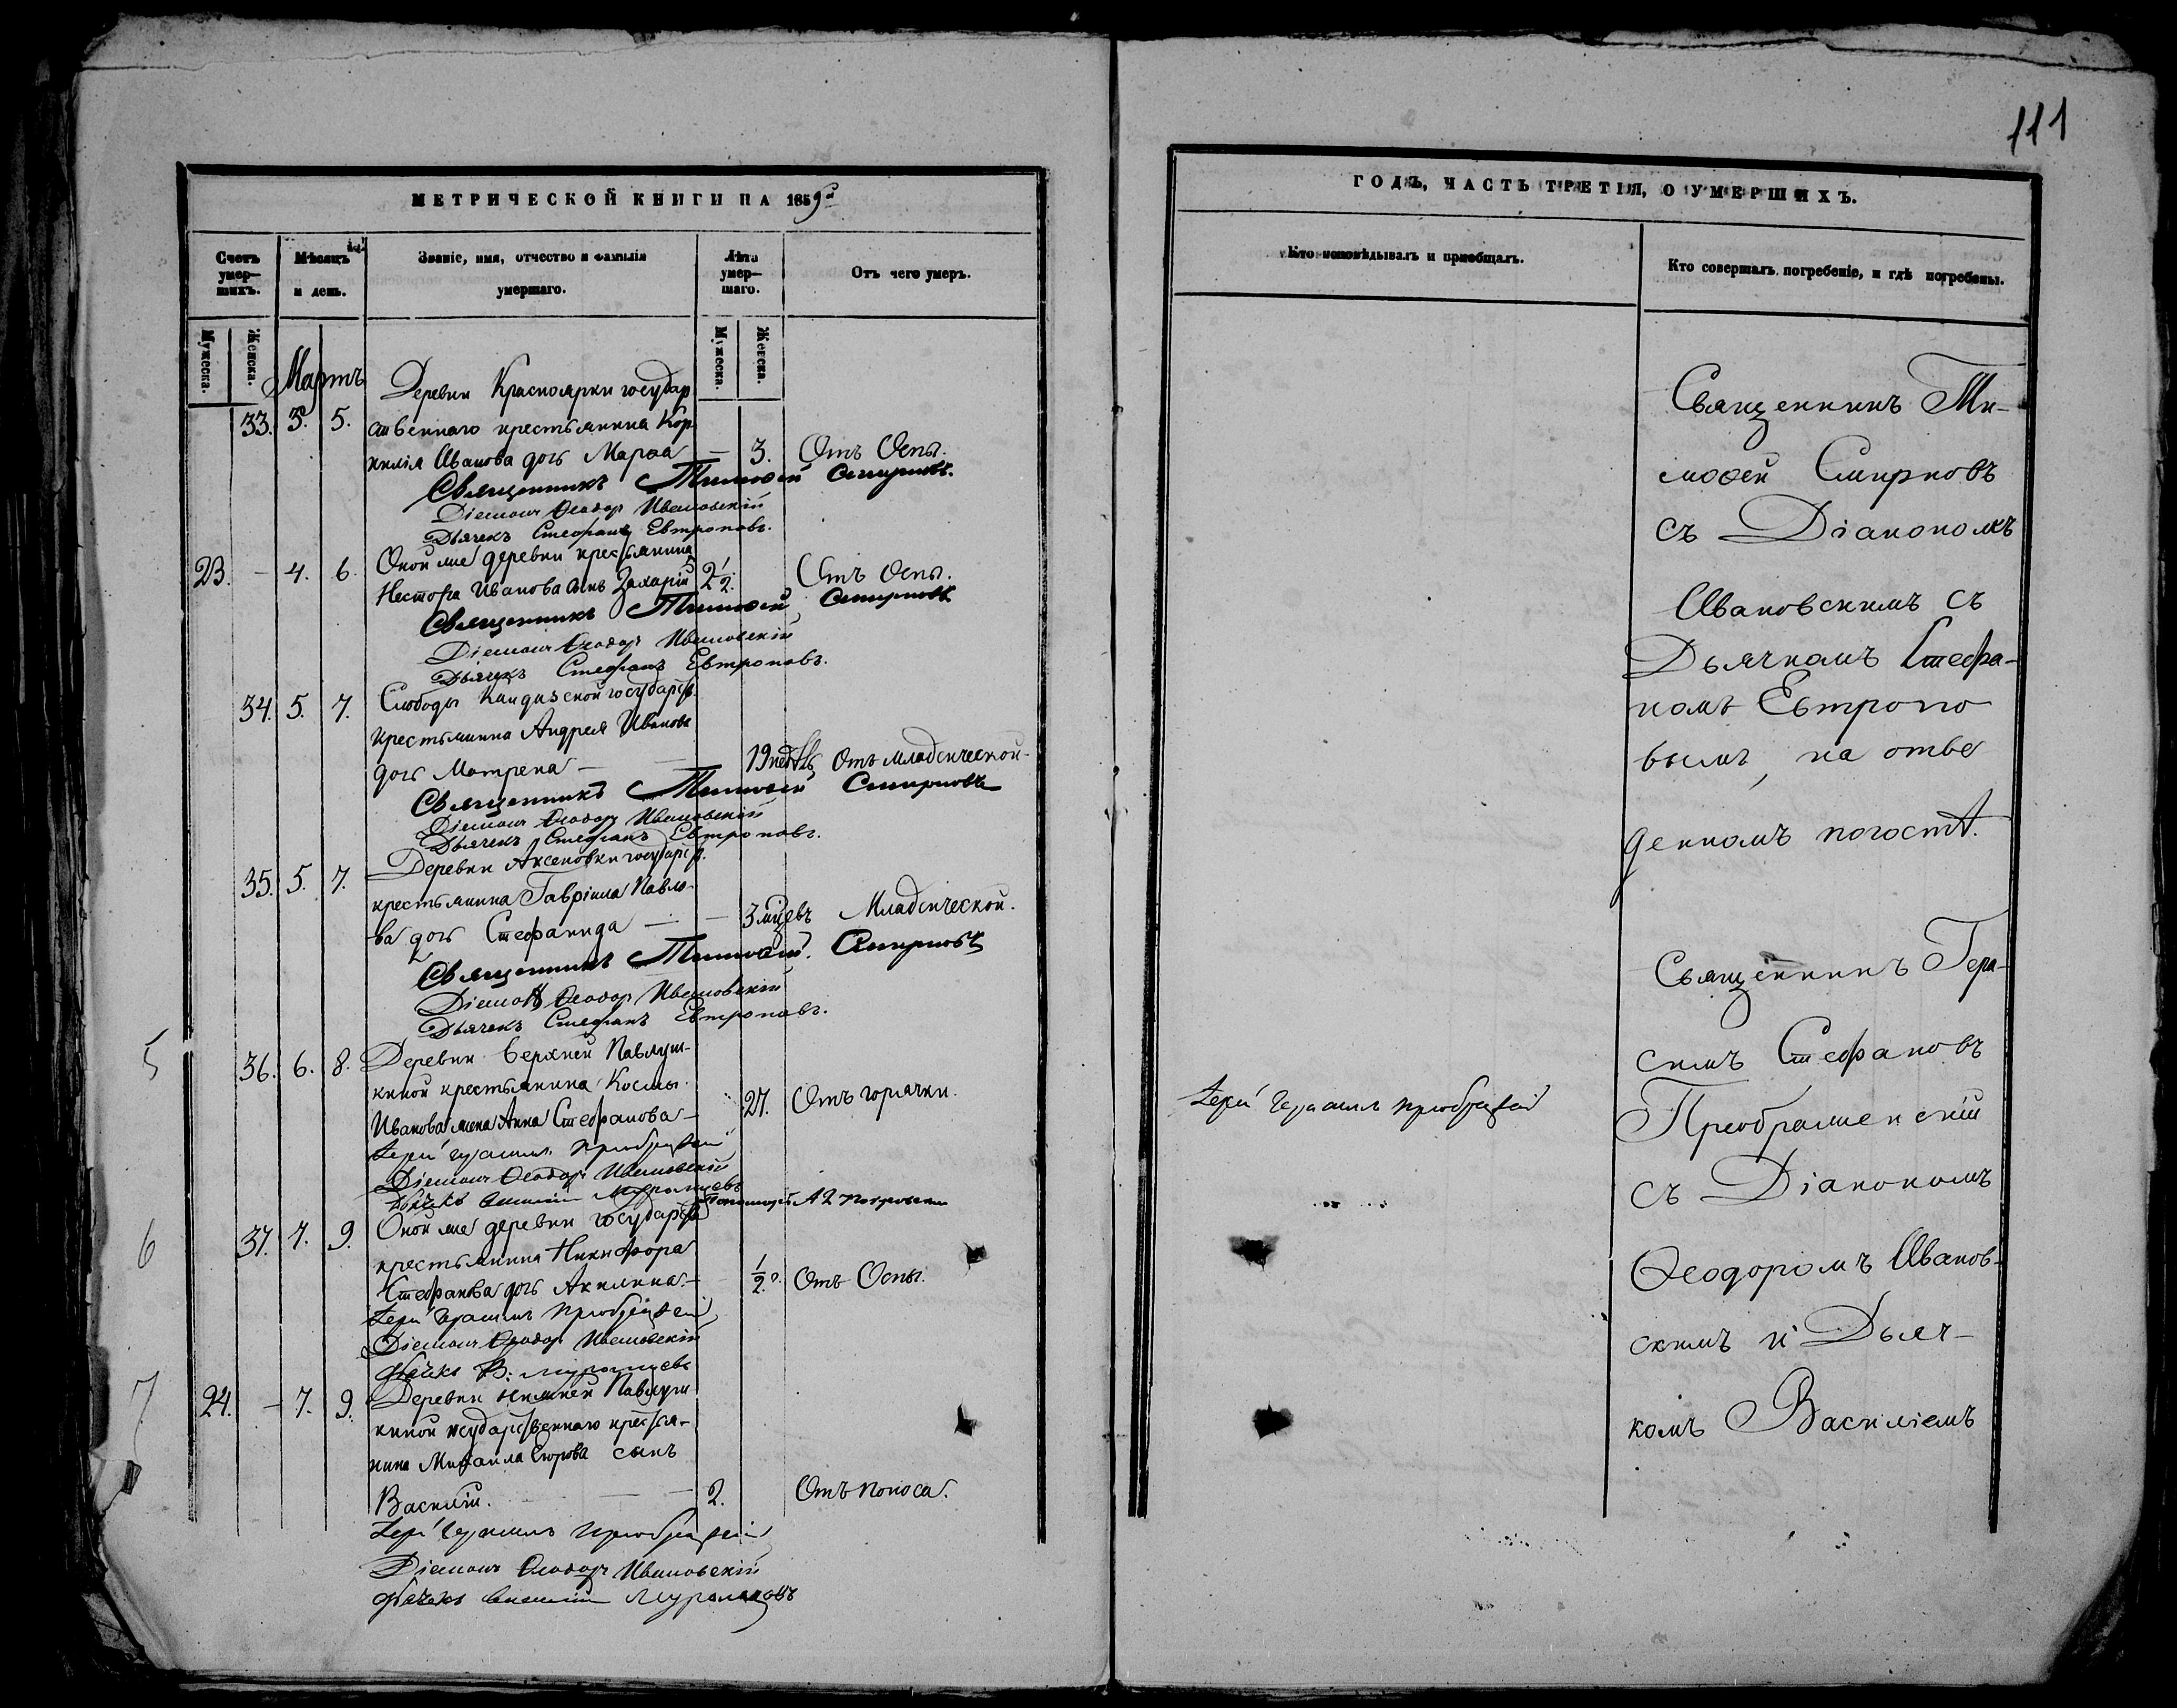 111
МЕТРИЧЕСКОЙ КНИГИ НА 1859й
Счетъ умер-шихъ.
Мѣсяцъ и день.
Званіе, имя, отчество и фамилія умершаго.
Лѣта умер-шаго.
Отъ чего умеръ.
Мужеска.
Женска.
Мужеска.
Женска.
Мартъ
Деревни Красноярки государ
33. 3. 5. ственнаго крестьянина Кор-
нилія Иванова дочь Марѳа — 3. Отъ Оспы.
Священникъ Тимоѳей Смирновъ.
Діаконъ Ѳеодоръ Ивановскій
Дьячекъ Стефанъ Евтроповъ.
Оной же деревни крестьянина
23. — 4. 6. Нестора Иванова сынъ Захарій 2 1/2. Отъ Оспы.
Священникъ Тимоѳей Смирновъ
Діаконъ Ѳеодоръ Ивановскій
Дьячекъ Стефанъ Евтроповъ.
34. 5. 7. Слободы Кандызской государств.
крестьянина Андрея Иванова
дочь Матрена — 19 недѣль Отъ младенческой.
Священникъ Тимоѳей Смирновъ
Діаконъ Ѳеодоръ Ивановскій
Дьячекъ Стефанъ Евтроповъ.
Деревни Аксеновки государств.
35. 5. 7. крестьянина Гавріила Павло-
ва дочь Стефанида — — 3 мцевъ Младенческой.
Священникъ Тимоѳей Смирновъ
Діаконъ Ѳеодоръ Ивановскій
Дьячекъ Стефанъ Евтроповъ.
5
36. 6. 8. Деревни Верхней Павлуш-
киной крестьянина Космы
Иванова жена Анна Стефанова — 27. Отъ горячки.
Іерей Герасимъ Преображенскій
Діаконъ Ѳеодоръ Ивановскій
6
37. 7. 9. Оной же деревни государств
крестьянина Никифора
Стефанова дочь Акилина. — 1/2. Отъ Оспы.
Іерей Герасимъ Преображенскій
Діаконъ Ѳеодоръ Ивановскій
7
24. — 7. 9. Деревни Нижней Павлуш
киной государственнаго крестья-
нина Михаила Егорова сынъ
Василій. — — 2. Отъ поноса.
Іерей Герасимъ Преображенскій
Діаконъ Ѳеодоръ Ивановскій
ГОДЪ, ЧАСТЬ ТРЕТІЯ, О УМЕРШИХЪ.
Кто исповѣдывалъ и пріобщалъ.
Кто совершалъ погребеніе, и гдѣ погребены.
Іерей Герасимъ Преображенскій
Священникъ Ти-
моѳей Смирновъ
съ Діакономъ
Ивановскимъ съ
Дьячкомъ Стефа-
номъ Евтропо
вымъ, на отве
денномъ погостѣ.
Священникъ Гера-
симъ Стефановъ
Преображенскій
съ Діакономъ
Ѳеодоромъ Иванов-
скимъ и Дьяч-
комъ Василіемъ